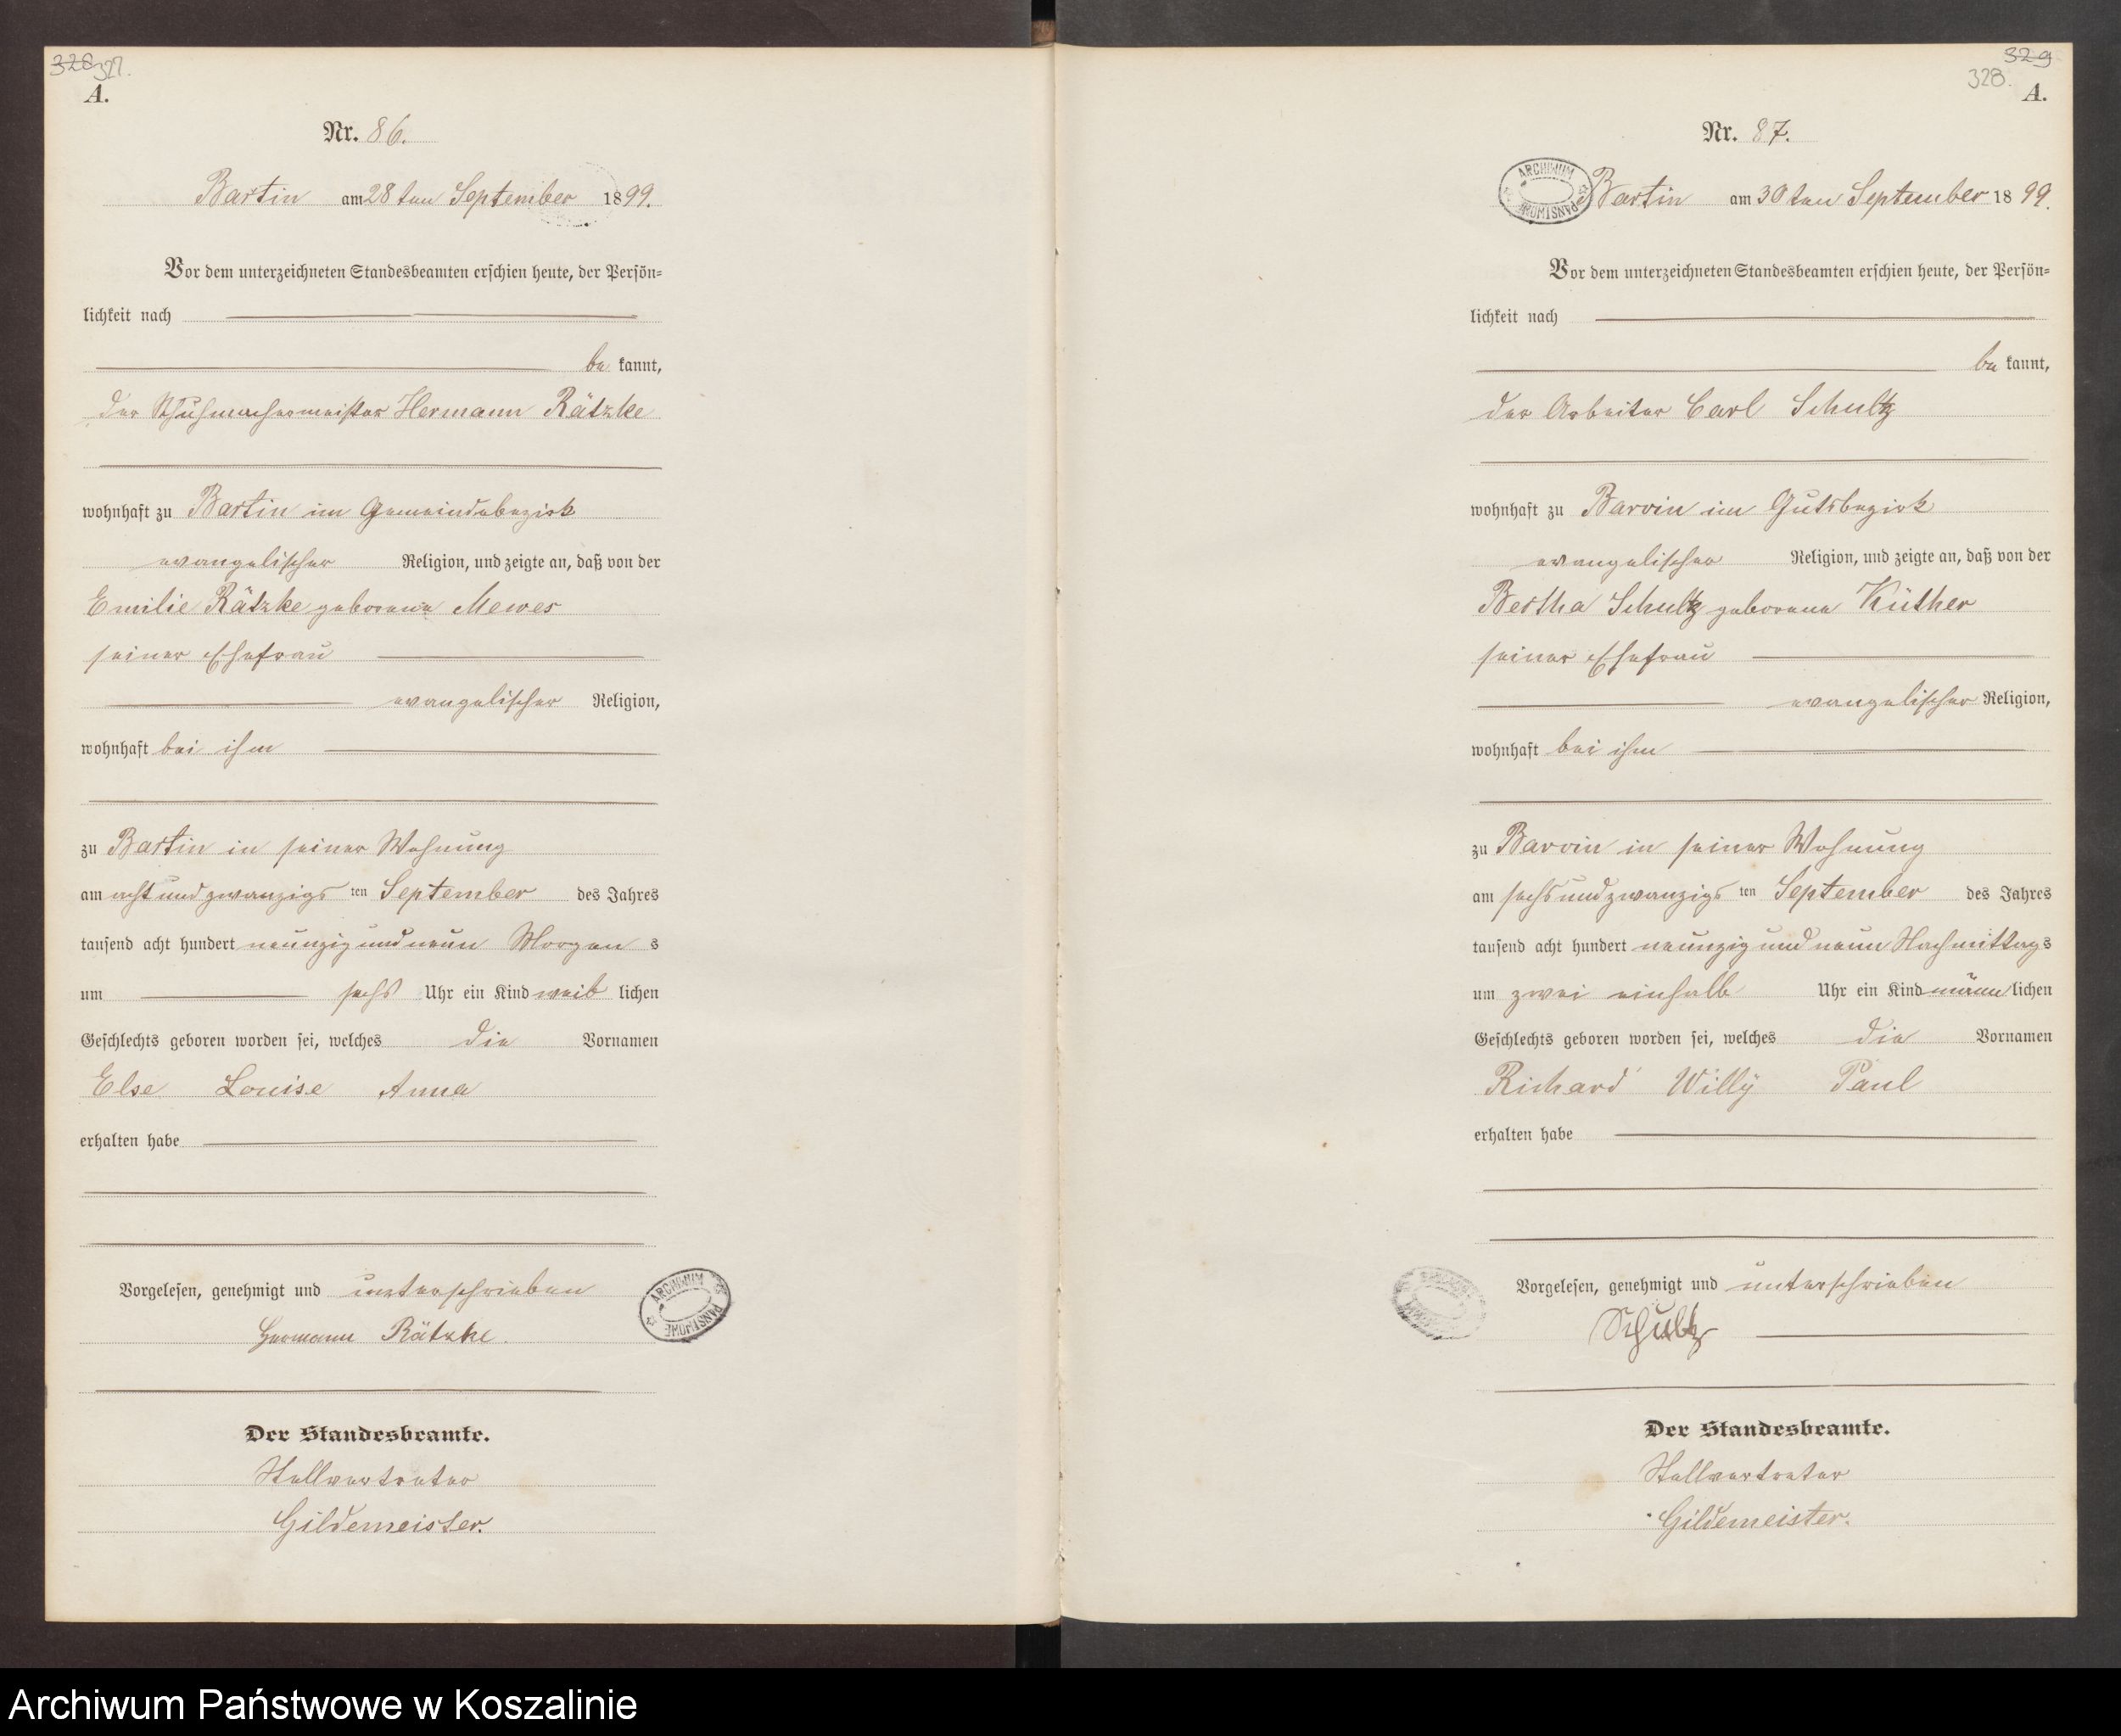 328 327.
A.
Nr. 86.
Bartin am 28ten September 1899.
Vor dem unterzeichneten Standesbeamten erschien heute, der Persön=
lichkeit nach
be kannt,
der Schuhmachermeister Hermann Rätzke
wohnhaft zu Bartin im Gemeindebezirk
evangelischer Religion, und zeigte an, daß von der
Emilie Rätzke geborene Mewes
seiner Ehefrau
evangelischer Religion,
wohnhaft bei ihm
zu Bartin in seiner Wohnung
am acht und zwanzigs ten September des Jahres
tausend acht hundert neunzig und neun Morgen s
um sechs Uhr ein Kind weib lichen
Geschlechts geboren worden sei, welches die Vornamen
Else Louise Anna
erhalten habe
Vorgelesen, genehmigt und unterschrieben
Hermann Rätzke.
ARCHIWUM PAŃSTWOWE
Der Standesbeamte.
Stellvertreter
Gildemeister.
329
328.
A.
Nr. 87.
ARCHIWUM PAŃSTWOWE
Bartin am 30ten September 1899.
Vor dem unterzeichneten Standesbeamten erschien heute, der Persön=
lichkeit nach
be kannt,
der Arbeiter Carl Schultz
wohnhaft zu Barvin im Gutsbezirk
evangelischer Religion, und zeigte an, daß von der
Bertha Schultz geborene Küther
seiner Ehefrau
evangelischer Religion,
wohnhaft bei ihm
zu Barvin in seiner Wohnung
am sechs und zwanzigs ten September des Jahres
tausend acht hundert neunzig und neun Nachmittags
um zwei einhalb Uhr ein Kind männ lichen
Geschlechts geboren worden sei, welches die Vornamen
Richard Willy Paul
erhalten habe
Vorgelesen, genehmigt und unterschrieben
Schultz
Der Standesbeamte.
Stellvertreter
Gildemeister.
Archiwum Państwowe w Koszalinie